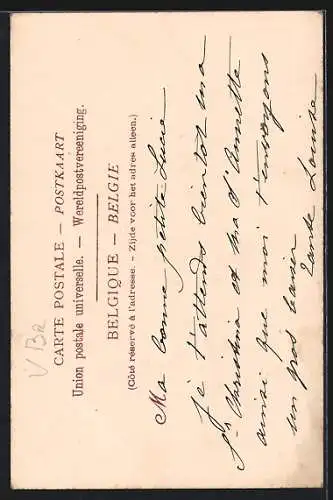 CARTE POSTALE — POSTKAART
Union postale universelle. — Wereldpostvereeniging.
BELGIQUE — BELGIE
(Côté réservé à l'adresse. – Zijde voor het adres alleen.)
Ma bonne petite Lucie
je t'attends bientôt ma
Christina et ma d'Annette
ainsi que moi t'envoyons
un gros baiser
Tante Louise